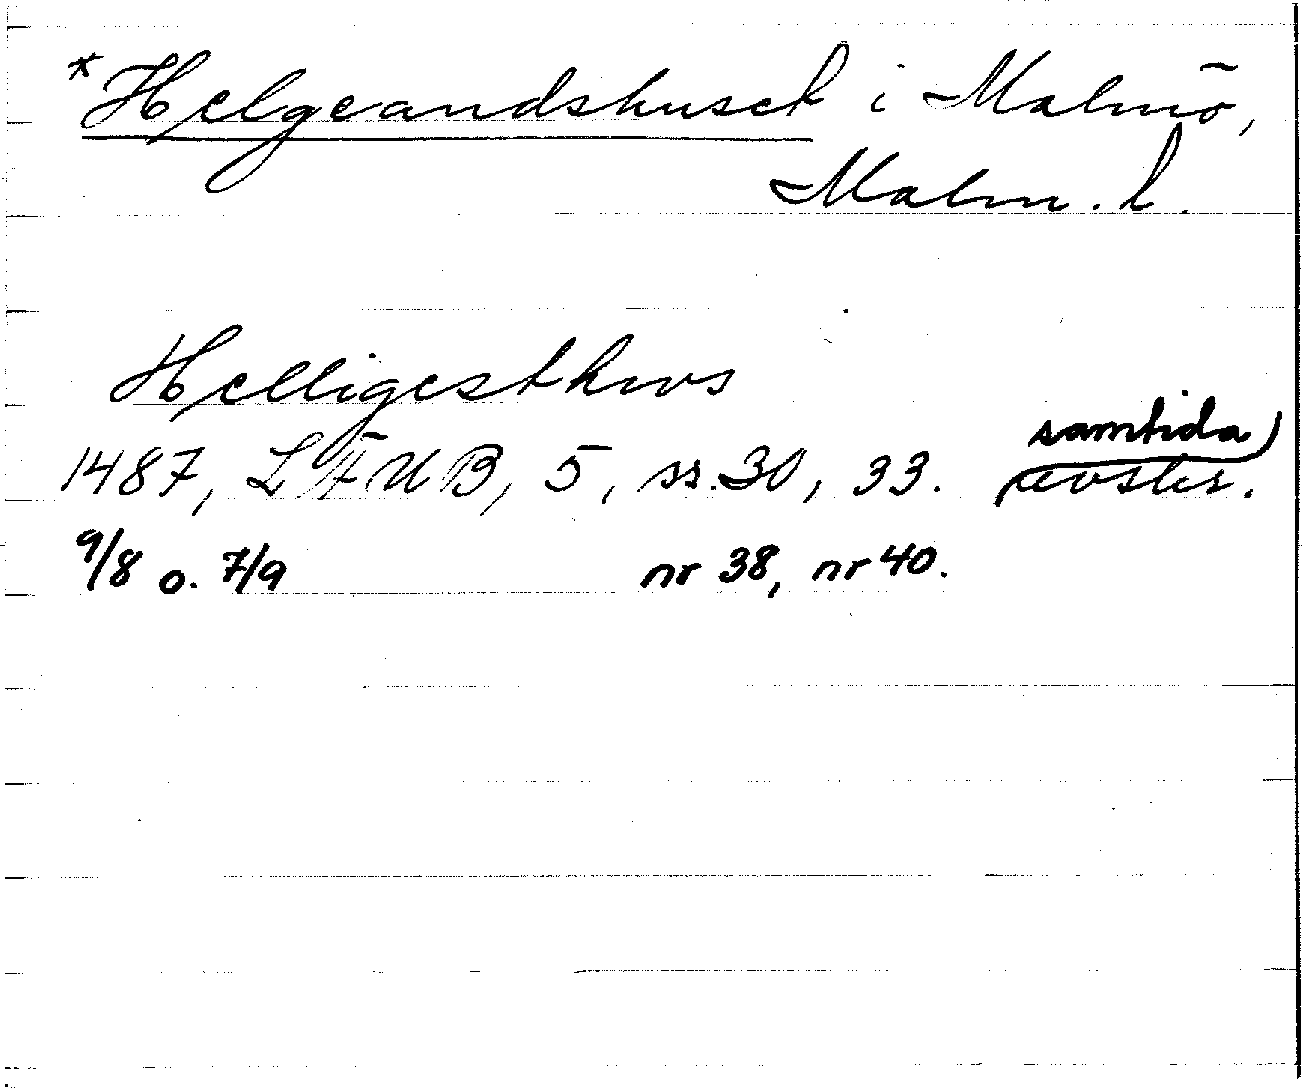 *Helgeandshuset i Malmö,
Malm. l.
Helligesthws
1487, LÄUB, 5, ss. 30, 33. samtida avskr.
9/8 o. 7/9 nr 38, nr 40.